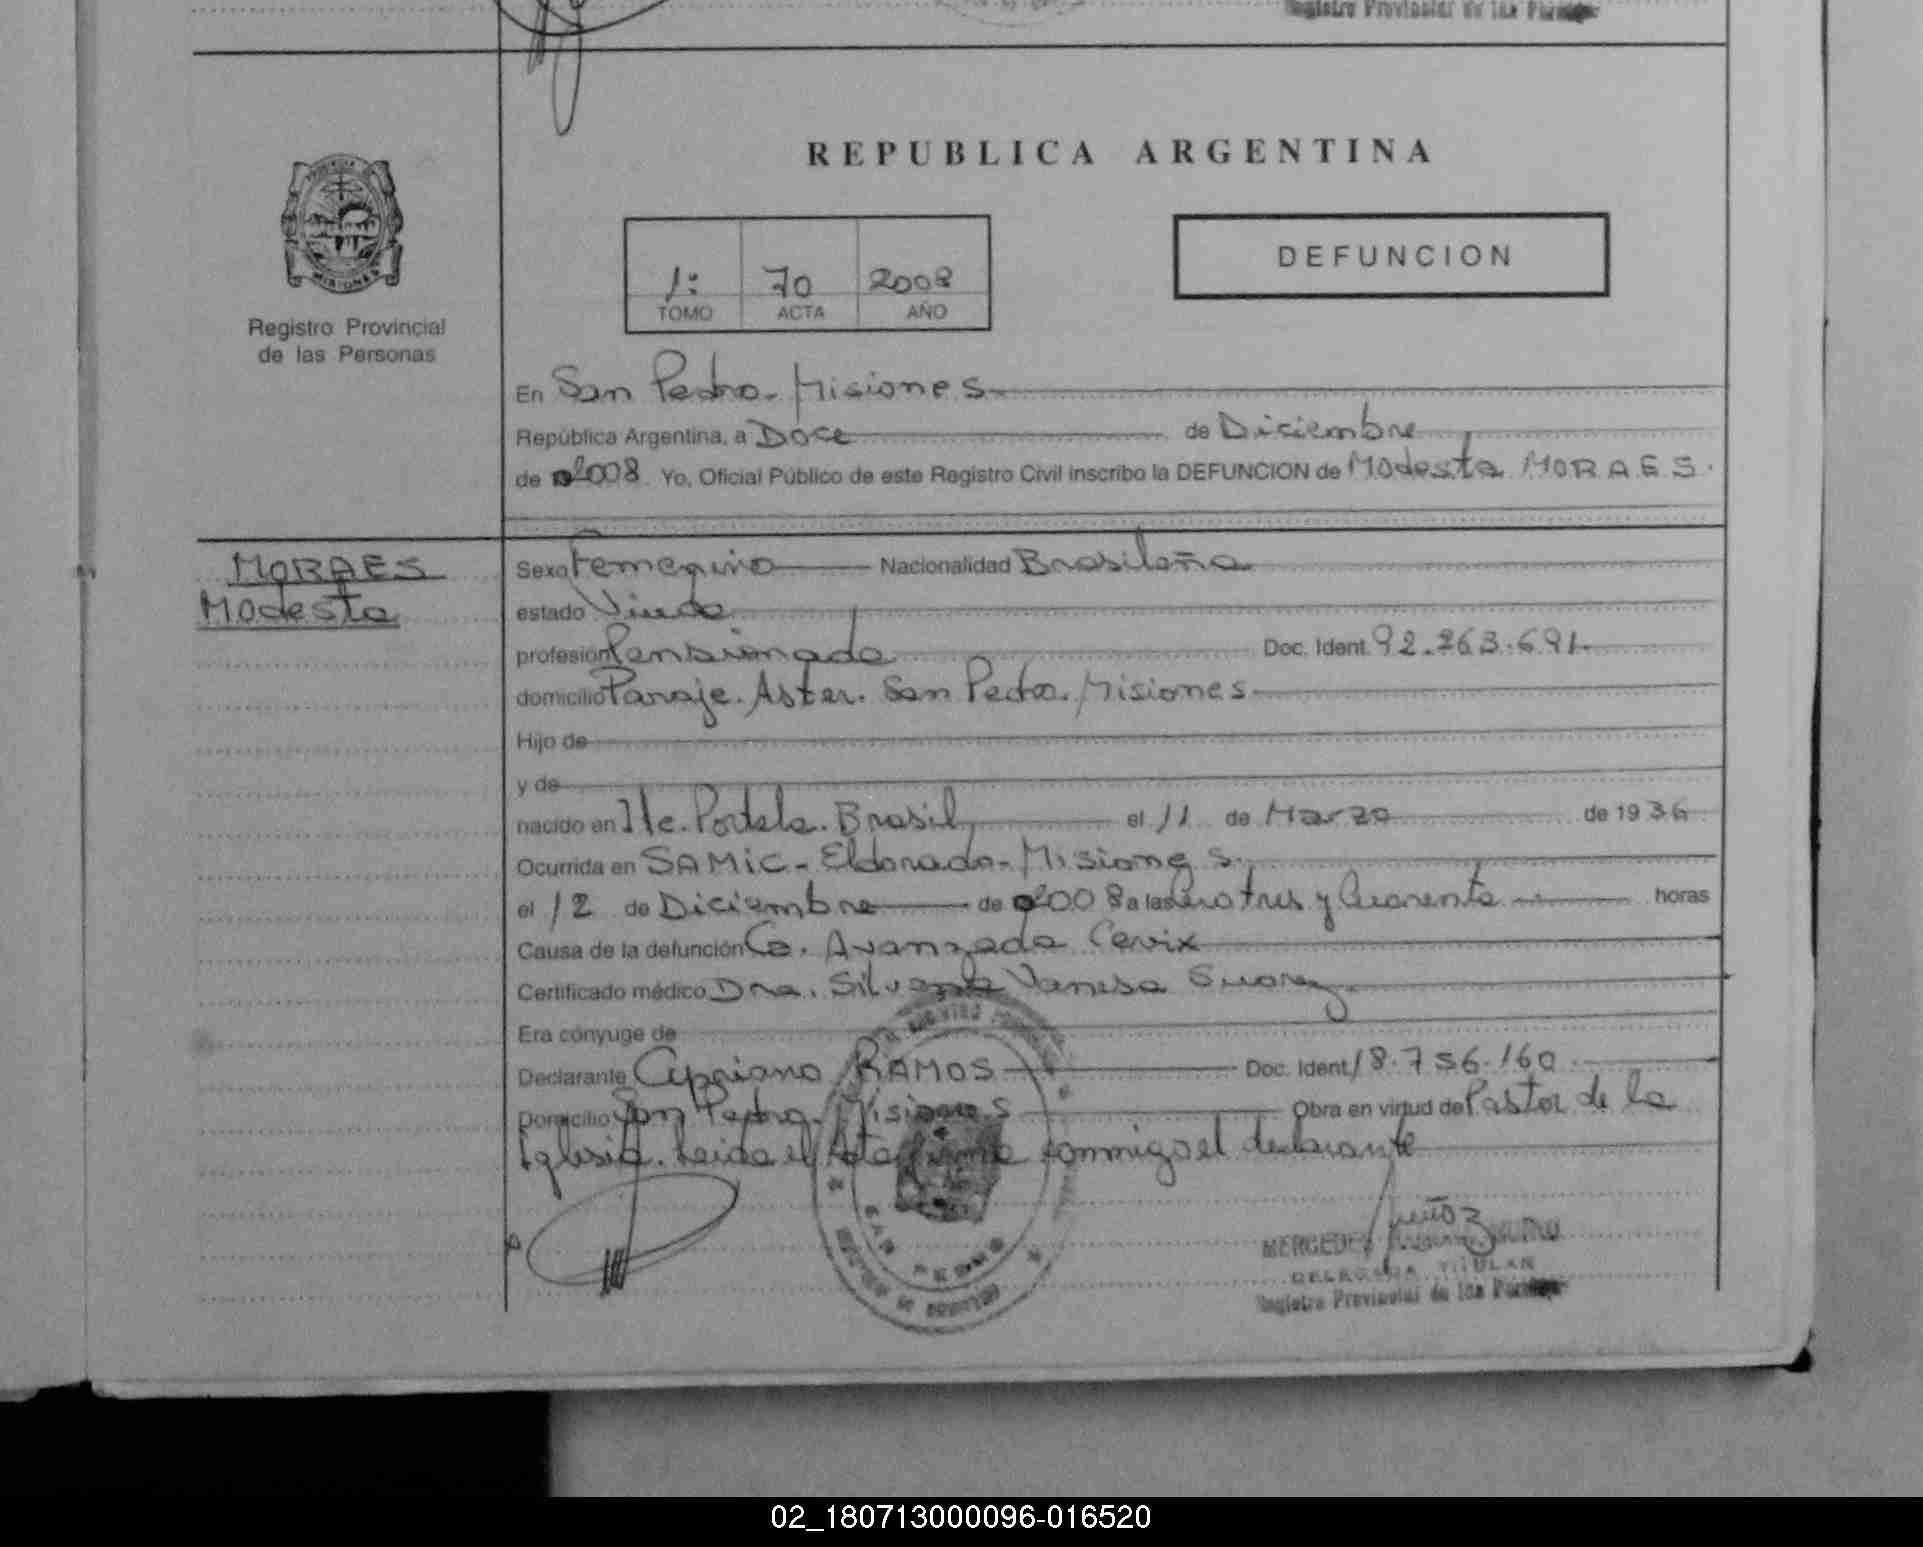 Registro Provincial de las Personas
REPUBLICA ARGENTINA
PROVINCIA
MISIONES
Registro Provincial
de las Personas
1: 70 2008
TOMO ACTA AÑO
DEFUNCION
En San Pedro. Misiones
República Argentina, a Doce de Diciembre
de 2008 Yo, Oficial Público de este Registro Civil inscribo la DEFUNCION de Modesta MORAES.
MORAES
Modesta
Sexo Femenino Nacionalidad Brasileña
estado Viuda
profesión Pensionada Doc. Ident. 92.263.691
domicilio Paraje. Aster. San Pedro. Misiones
Hijo de
y de
nacido en Tte. Portela. Brasil, el 11 de Marzo de 1936
Ocurrida en SAMIC - Eldorado - Misiones.
el 12 de Diciembre de 2008 a las cero tres y Cuarenta horas
Causa de la defunción Ca. Avanzado Cervix
Certificado médico Dra. Silvana Vanesa Suarez
Era cónyuge de
Declarante Cipriano RAMOS Doc. Ident. 18.756.160
Domicilio San Pedro. Misiones Obra en virtud de Pastor de la
Iglesia. Leida el Acta firma conmigo el declarante
SAN PEDRO
MERCEDES
DELEGADA TITULAR
Registro Provincial de las Personas
02_180713000096-016520